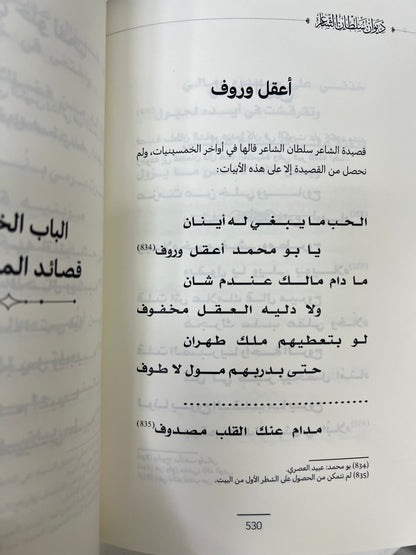 ديوان سلطان الشاعر
أعقل وروف
قصيدة الشاعر سلطان الشاعر قالها في أواخر الخمسينيات، ولم
نحصل من القصيدة إلا على هذه الأبيات:
الحب ما يبغي له أينان
يا بو محمد أعقل وروف(834)
ما دام مالك عندم شان
ولا دليه العقل مخفوف
لو بتعطيهم ملك طهران
حتى بدربهم مول لا طوف
..............................
مدام عنك القلب مصدوف(835)
(834) بو محمد: عبيد العصري.
(835) لم نتمكن من الحصول على الشطر الأول من البيت.
530
الباب الخ
قصائد الم